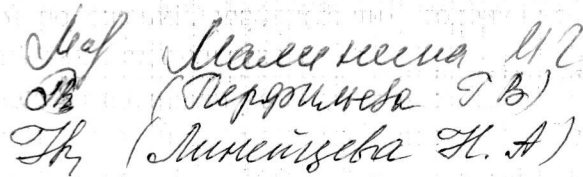 Малинина М Г
(Перфильева Г В)
(Линейцева Н. А)